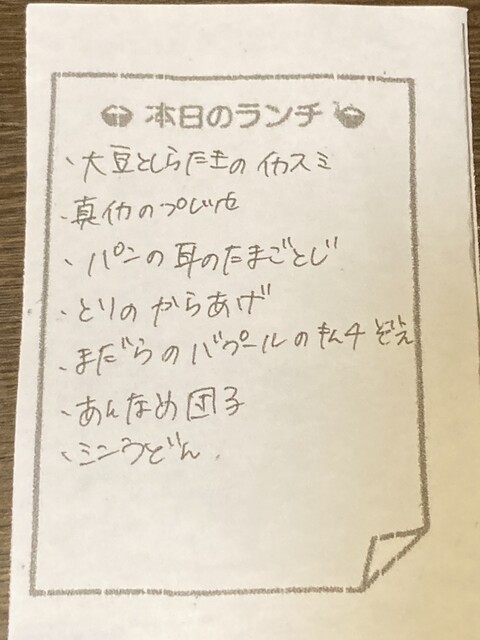 本日のランチ
・大豆としらたきのイカスミ
・真イカのプレゼ
・パンの耳のたまごとじ
・とりのからあげ
・まだらのバプールのキムチぞえ
・あんなめ団子
・ミンうどん